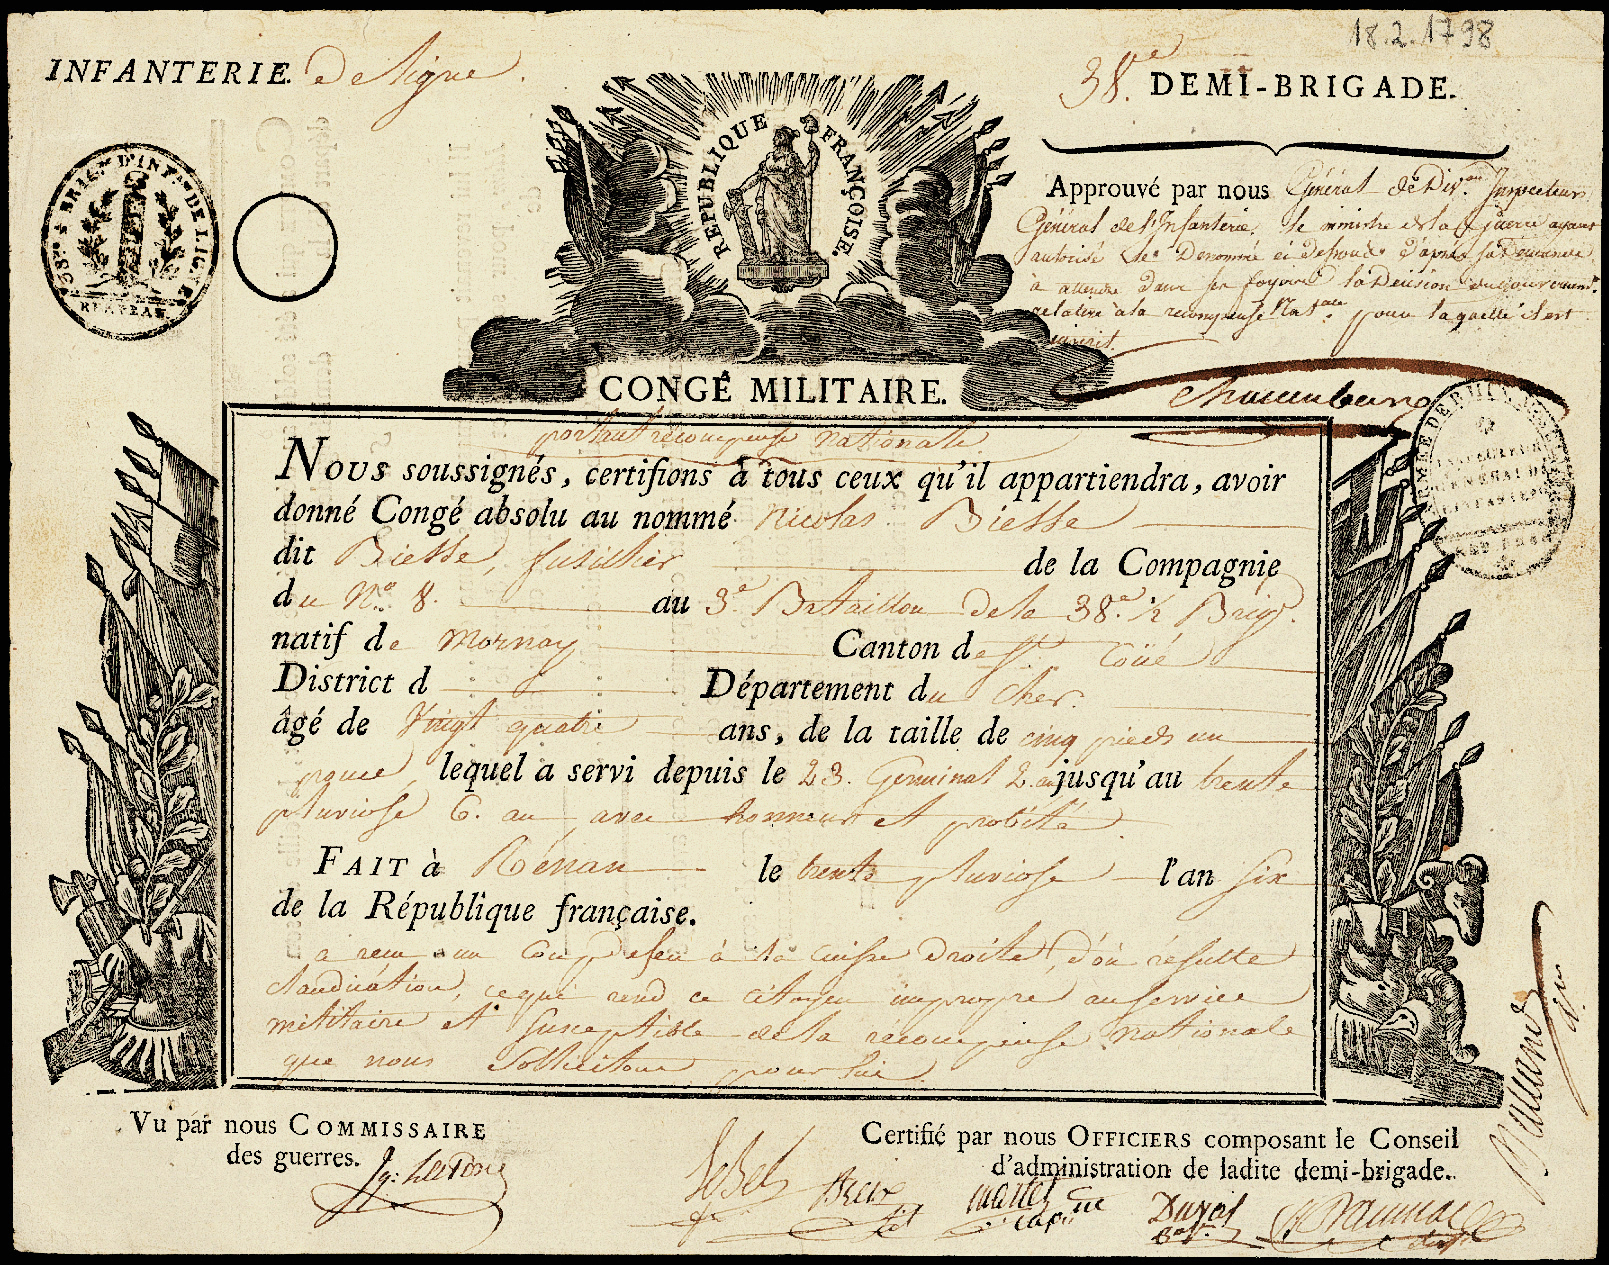 18.2.1798
INFANTERIE. De Ligne.
38.e DEMI-BRIGADE.
38.e ½ BRIG.de D'INF.rie DE LIGNE
RÉPUBLIQUE FRANÇOISE.
Approuvé par nous Général de Div.on Inspecteur
Général de l'Infanterie, le ministre de la guerre ayant
autorisé le Denommé ci dessous d'après sa Demande
à attendre dans ses foyers la Décision du gouvernem.t
relative à la recompense Nat.ale pour laquelle il est
inscrit.
CONGÉ MILITAIRE.
Schauenburg
INSPECTEUR
GÉNÉRAL DE
L'INFANTERIE
portant récompense nationale
Nous soussignés, certifions à tous ceux qu'il appartiendra, avoir
donné Congé absolu au nommé Nicolas Biesse
dit Biesse, fusillier de la Compagnie
du N.o 8. au 3.e Bataillon de la 38.e ½ Brig.
natif de Mornay Canton de St
District d Département du Cher.
âgé de Vingt quatre ans, de la taille de cinq pieds un
pouce, lequel a servi depuis le 23. Germinal 2. an jusqu'au trente
pluviose 6. an avec honneur et probité.
FAIT à Renan le trente pluviose l'an six
de la République française.
a reçu un coup de feu à la cuisse droite, d'où résulte
claudication, ce qui rend ce citoyen impropre au service
militaire et susceptible de la récompense nationale
que nous sollicitons pour lui.
Vu par nous COMMISSAIRE
des guerres.
Certifié par nous OFFICIERS composant le Conseil
d'administration de ladite demi-brigade.
Martel
cap.ne